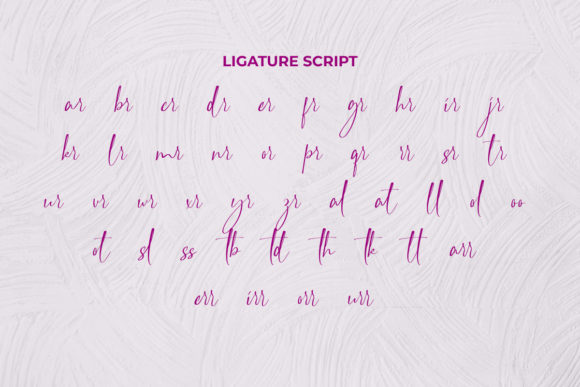 LIGATURE SCRIPT
ar br cr dr er fr gr hr ir jr
kr lr mr nr or pr qr rr sr tr
ur vr wr xr yr zr al at ll ol oo
ot sl ss tb td th tk tt arr
err irr orr urr